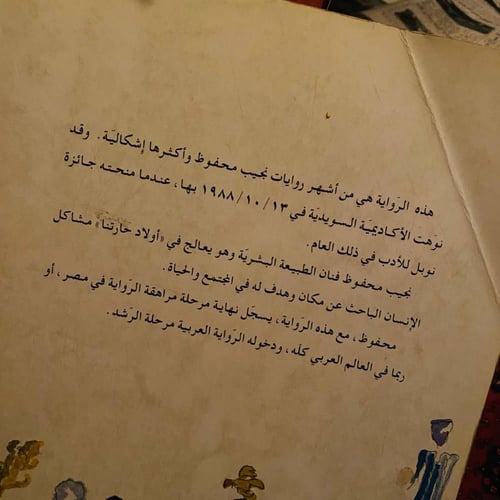 هذه الرّواية هي من أشهر روايات نجيب محفوظ وأكثرها إشكاليّة. وقد
نوّهت الأكاديميّة السويديّة في ١٣/١٠/١٩٨٨ بها، عندما منحته جائزة
نوبل للأدب في ذلك العام.
نجيب محفوظ فنان الطبيعة البشريّة وهو يعالج في «أولاد حارتنا» مشاكل
الإنسان الباحث عن مكان وهدف له في المجتمع والحياة.
محفوظ، مع هذه الرّواية، يسجّل نهاية مرحلة مراهقة الرّواية في مصر، أو
ربما في العالم العربي كلّه، ودخوله الرواية العربية مرحلة الرّشد.